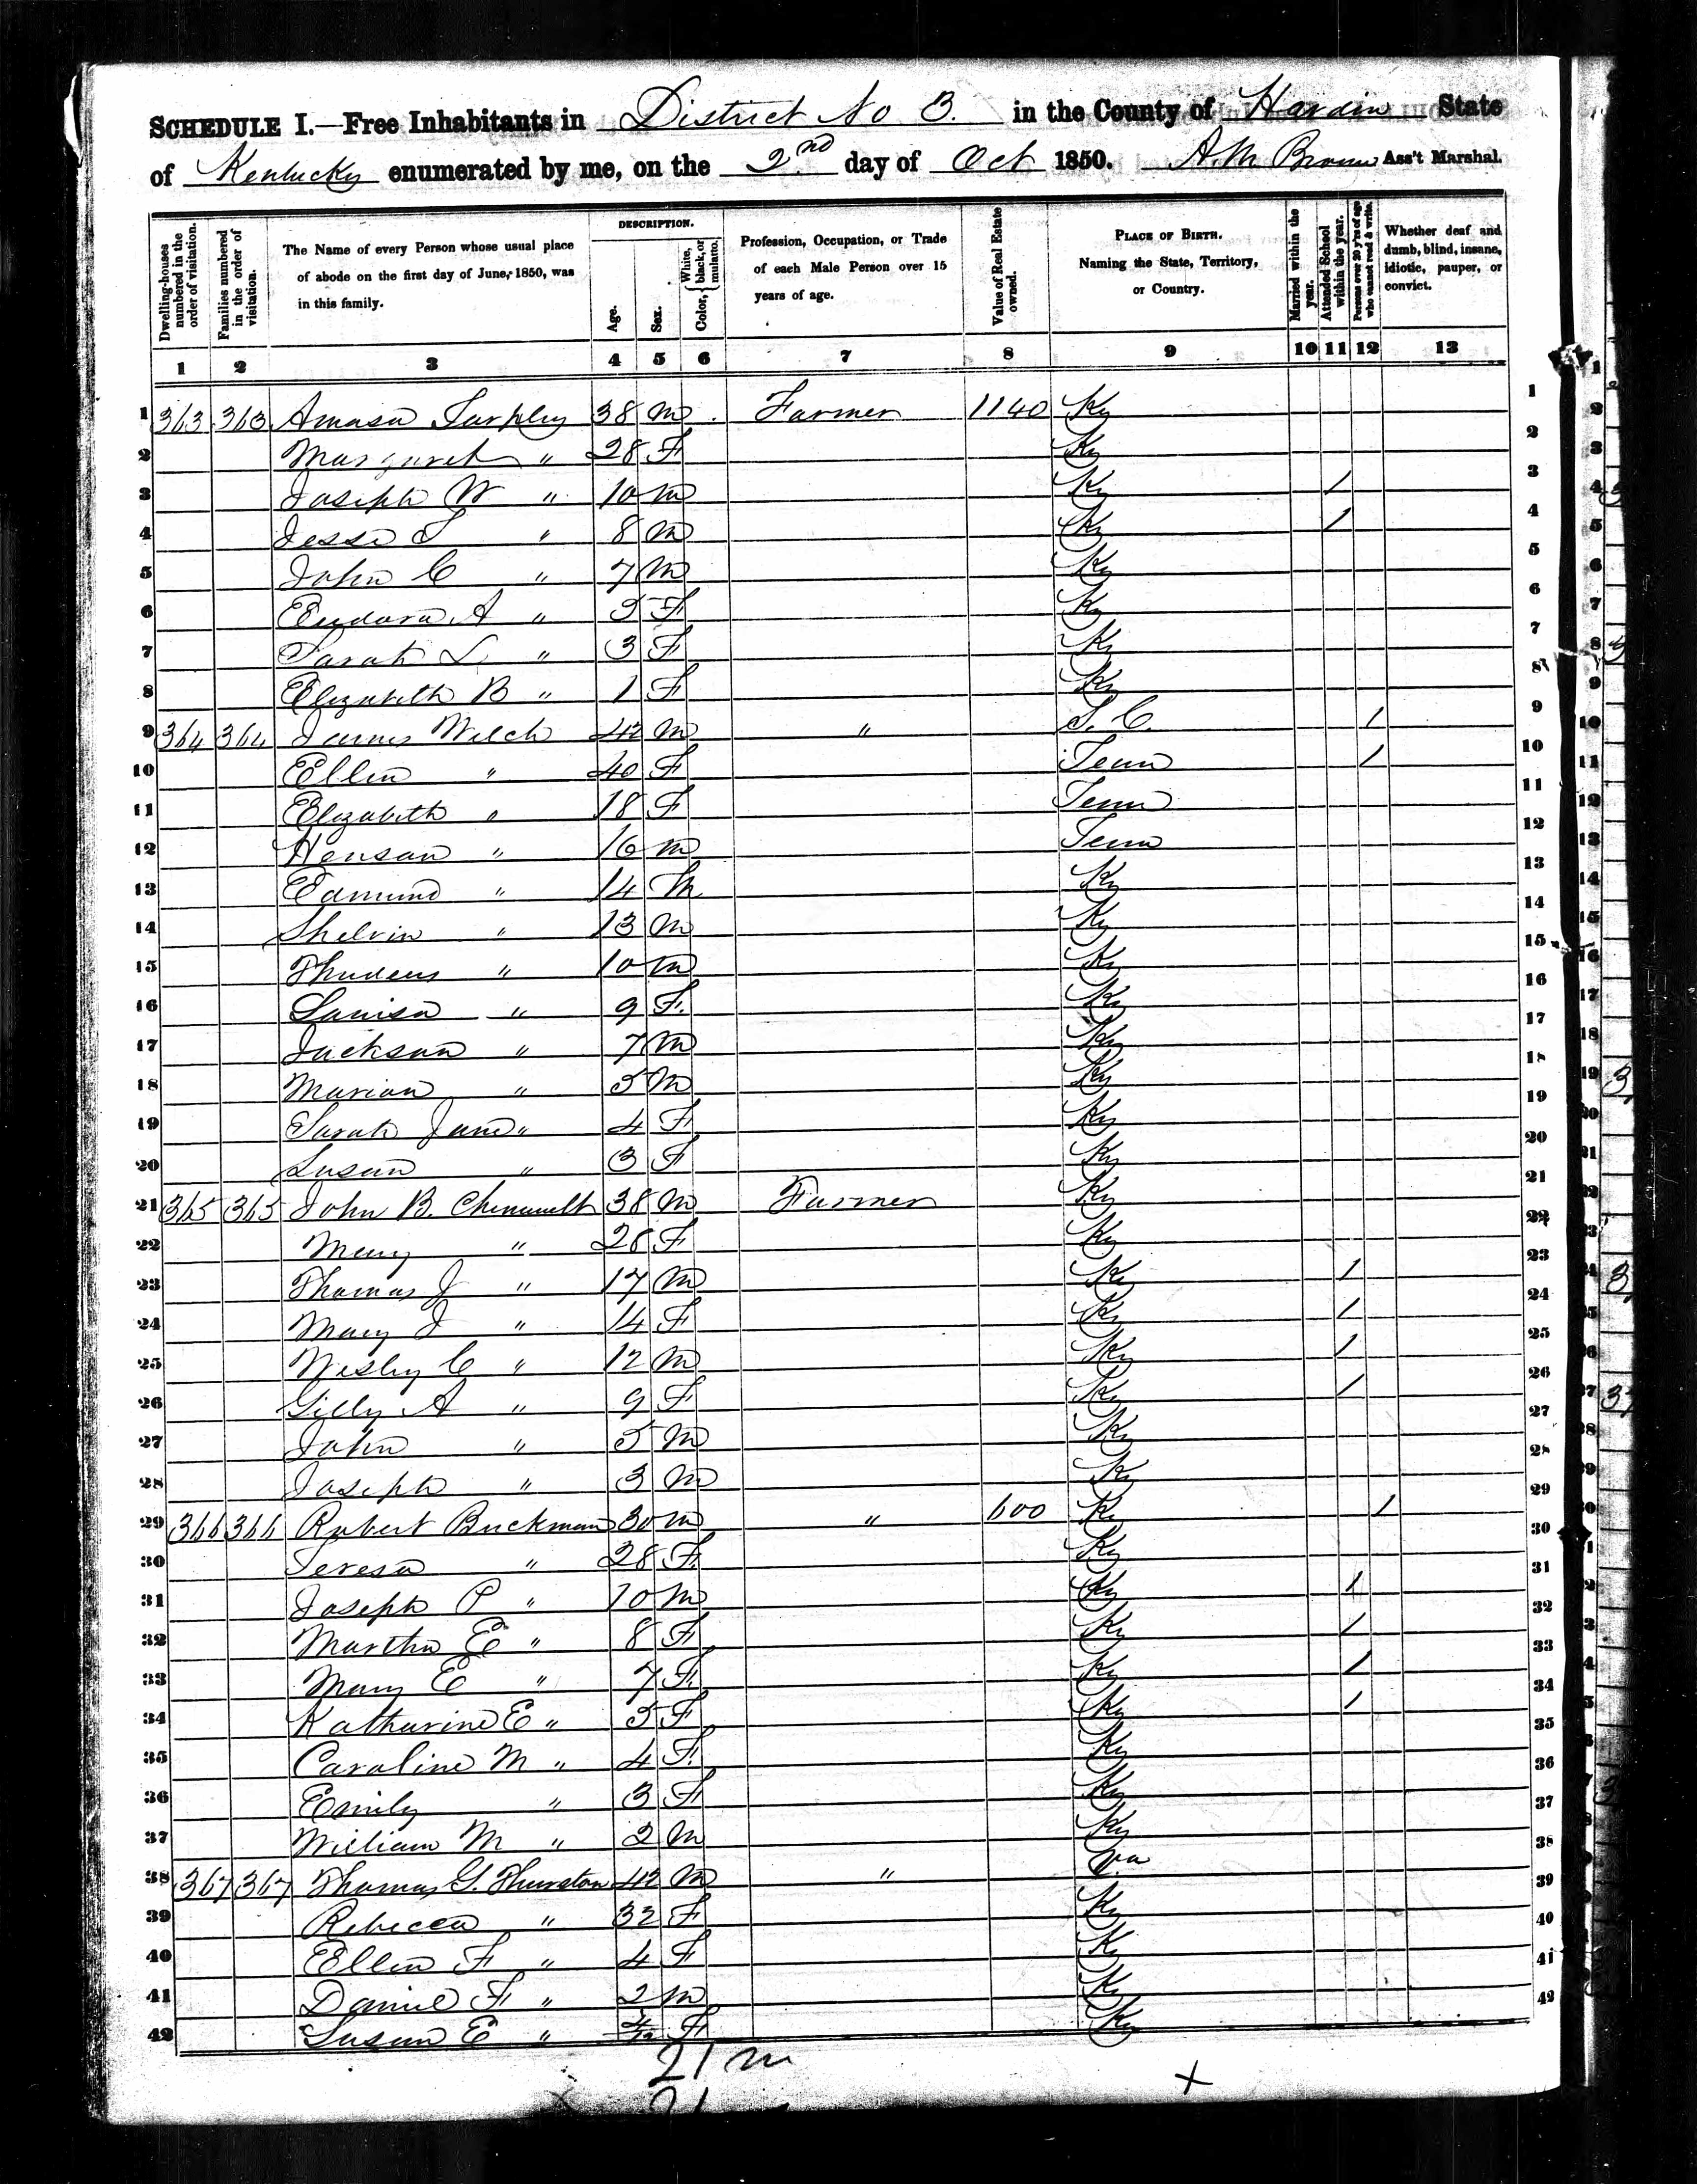 SCHEDULE I.—Free Inhabitants in District No 3. in the County of Hardin State
of Kentucky enumerated by me, on the 2nd day of Oct 1850. A.M Brown Ass't Marshal.
Dwelling-houses numbered in the order of visitation.
Families numbered in the order of visitation.
The Name of every Person whose usual place of abode on the first day of June, 1850, was in this family.
DESCRIPTION.
Age.
Sex.
Color, { White, black, or mulatto.
Profession, Occupation, or Trade of each Male Person over 15 years of age.
Value of Real Estate owned.
PLACE OF BIRTH. Naming the State, Territory, or Country.
Married within the year.
Attended School within the year.
Persons over 20 y'rs of age who cannot read & write.
Whether deaf and dumb, blind, insane, idiotic, pauper, or convict.
1 2 3 4 5 6 7 8 9 10 11 12 13
1 363 363 Amasa Tarpley 38 m Farmer 1140 Ky 1
2 Margaret " 28 F Ky 2
3 Joseph W " 10 m Ky / 3
4 Jesse T " 8 m Ky / 4
5 John C " 7 m Ky 5
6 Eudora A " 5 F Ky 6
7 Sarah L " 3 F Ky 7
8 Elizabeth B " 1 F Ky 8
9 364 364 James Welch 42 m " S. C. / 9
10 Ellen " 40 F Tenn / 10
11 Elizabeth " 18 F Tenn 11
12 Henson " 16 m Tenn 12
13 Edmund " 14 m Ky 13
14 Shelvin " 13 m Ky 14
15 " 10 m Ky 15
16 Louisa " 9 F. Ky 16
17 Jackson " 7 m Ky 17
18 Marion " 5 m Ky 18
19 Sarah Jane " 4 F Ky 19
20 Susan " 3 F Ky 20
21 365 365 John B. Chenault 38 m Farmer Ky 21
22 Mary " 28 F Ky 22
23 Thomas J " 17 m Ky / 23
24 Mary J " 14 F Ky / 24
25 Wesley C " 12 m Ky / 25
26 Gilly A " 9 F Ky / 26
27 John " 5 m Ky 27
28 Joseph " 3 m Ky 28
29 366 366 Robert Buckman 30 m " 600 Ky / 29
30 Teresa " 28 F. Ky 30
31 Joseph P " 10 m Ky / 31
32 Martha E " 8 F Ky / 32
33 Mary E " 7 F. Ky / 33
34 Katharine E " 5 F Ky / 34
35 Caroline M " 4 F. Ky 35
36 Emily " 3 F Ky 36
37 William M " 2 m Ky 37
38 367 367 Thomas G. Thurston 42 m " Va 38
39 Rebecca " 32 F Ky 39
40 Ellen F " 4 F Ky 40
41 Daniel F " 2 m Ky 41
42 Susan E " F Ky 42
21 m
21
x